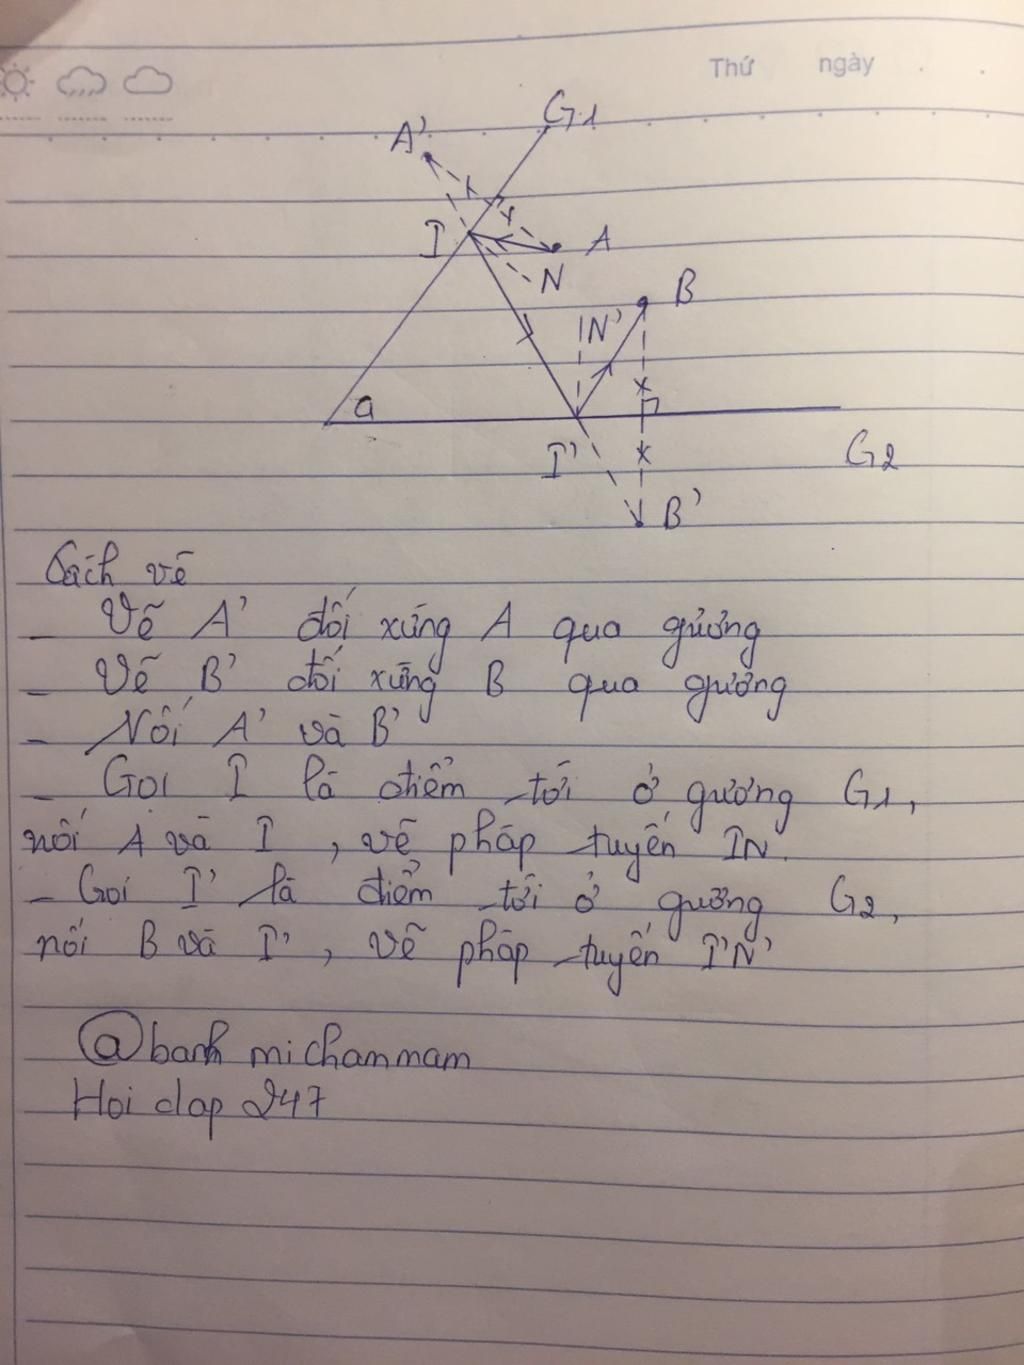 Thứ ngày
G1
A'
I
A
N
B
N'
a
I'
G2
B'
Cách vẽ
- Vẽ A' đối xứng A qua gương
- Vẽ B' đối xứng B qua gương
- Nối A' và B'
- Gọi I là điểm tới ở gương G1,
nối A và I, vẽ pháp tuyến IN.
- Gọi I' là điểm tới ở gương G2,
nối B và I', vẽ pháp tuyến I'N'
@banh mi chammam
Hoi dap 247